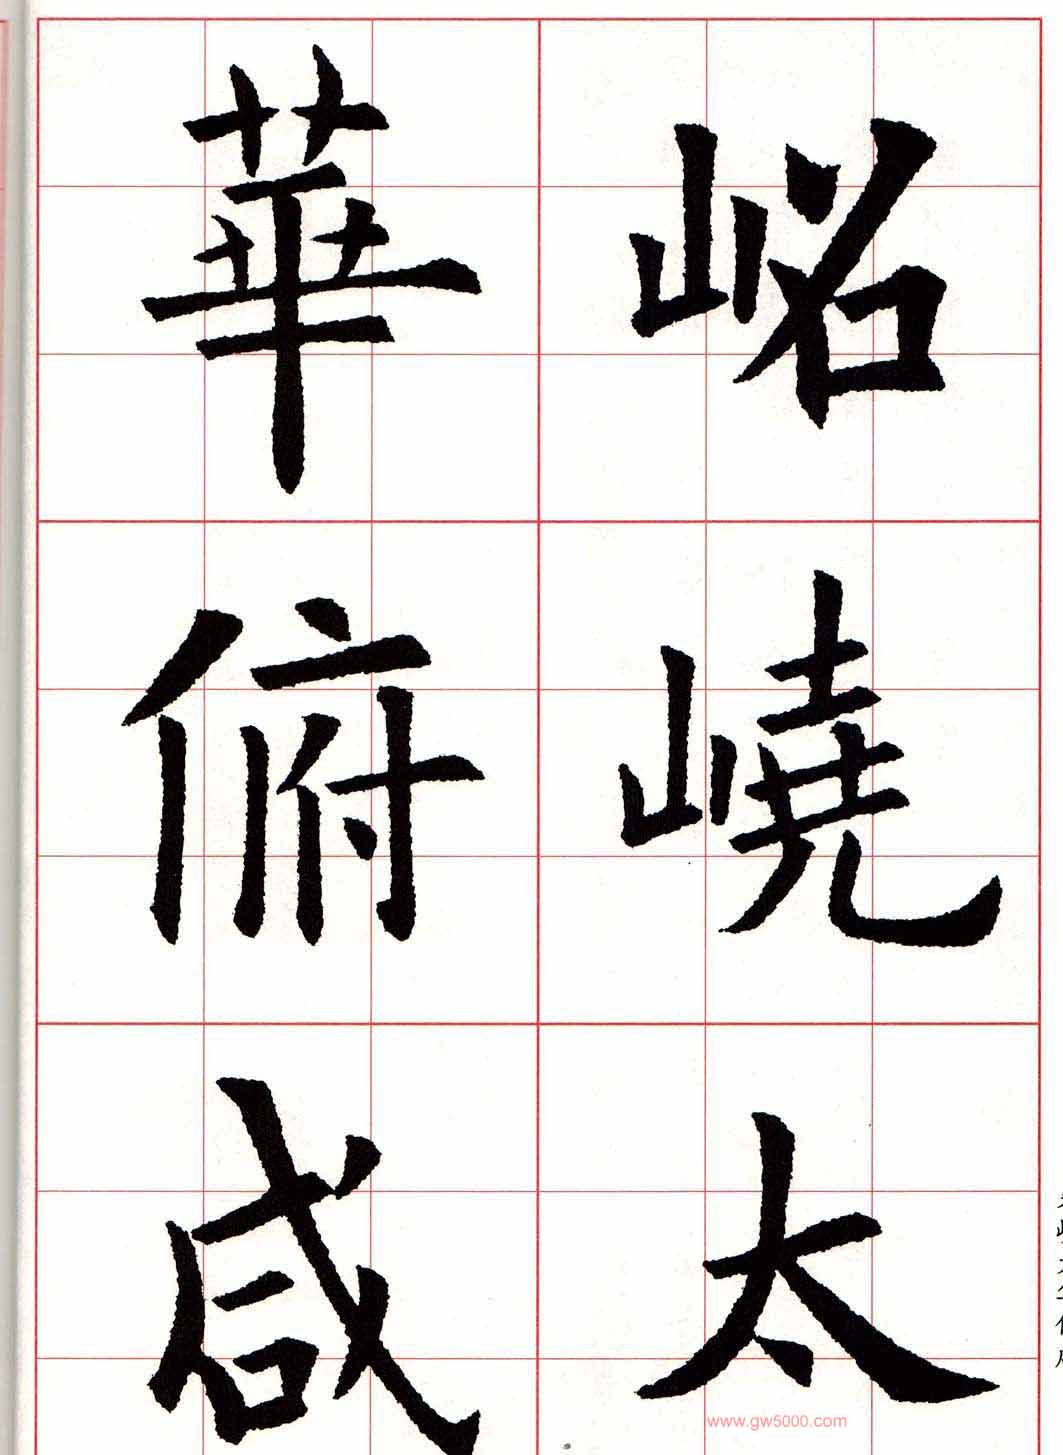 岹嶢太
華俯咸
www.gw5000.com